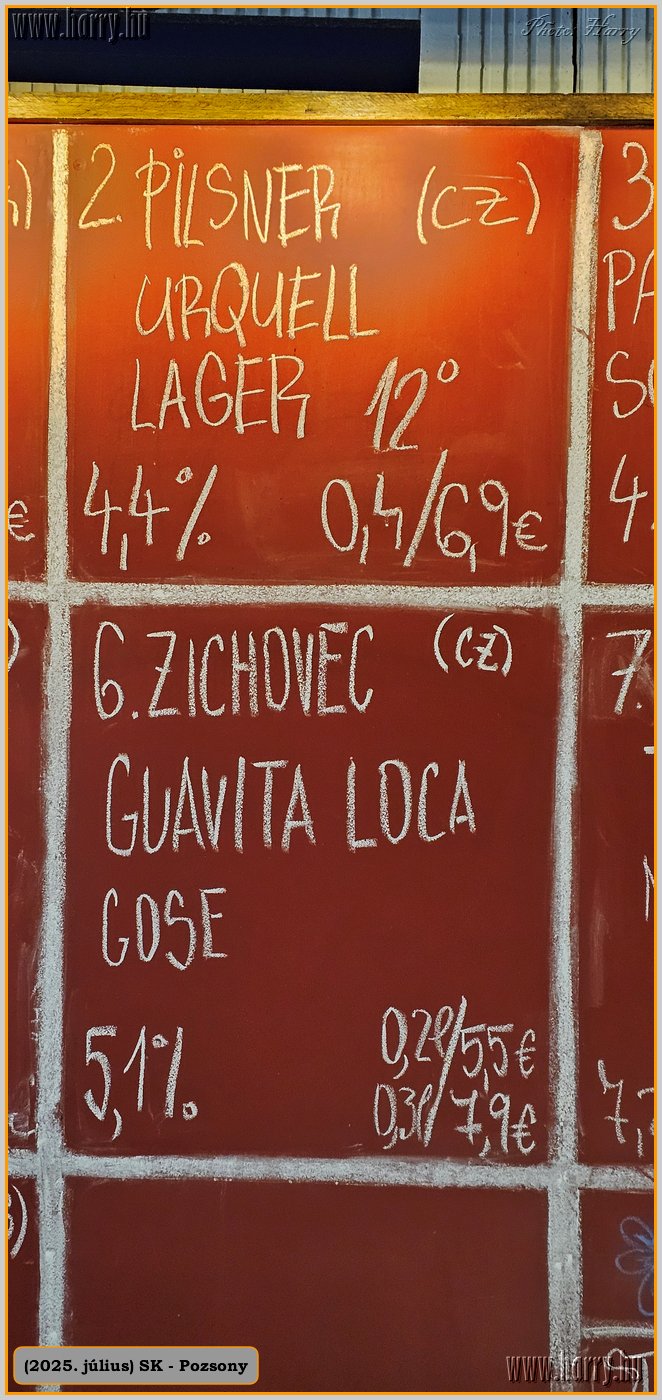 www.harry.hu
Photo: Harry
2. PILSNER (CZ)
URQUELL
LAGER 12°
4,4% 0,4/6,9€
3
PA
4.
€
6. ZICHOVEC (CZ)
GUAVITA LOCA
GOSE
5,1% 0,2l/5,5€
0,3l/7,9€
7.
7,
(2025. július) SK - Pozsony
www.harry.hu